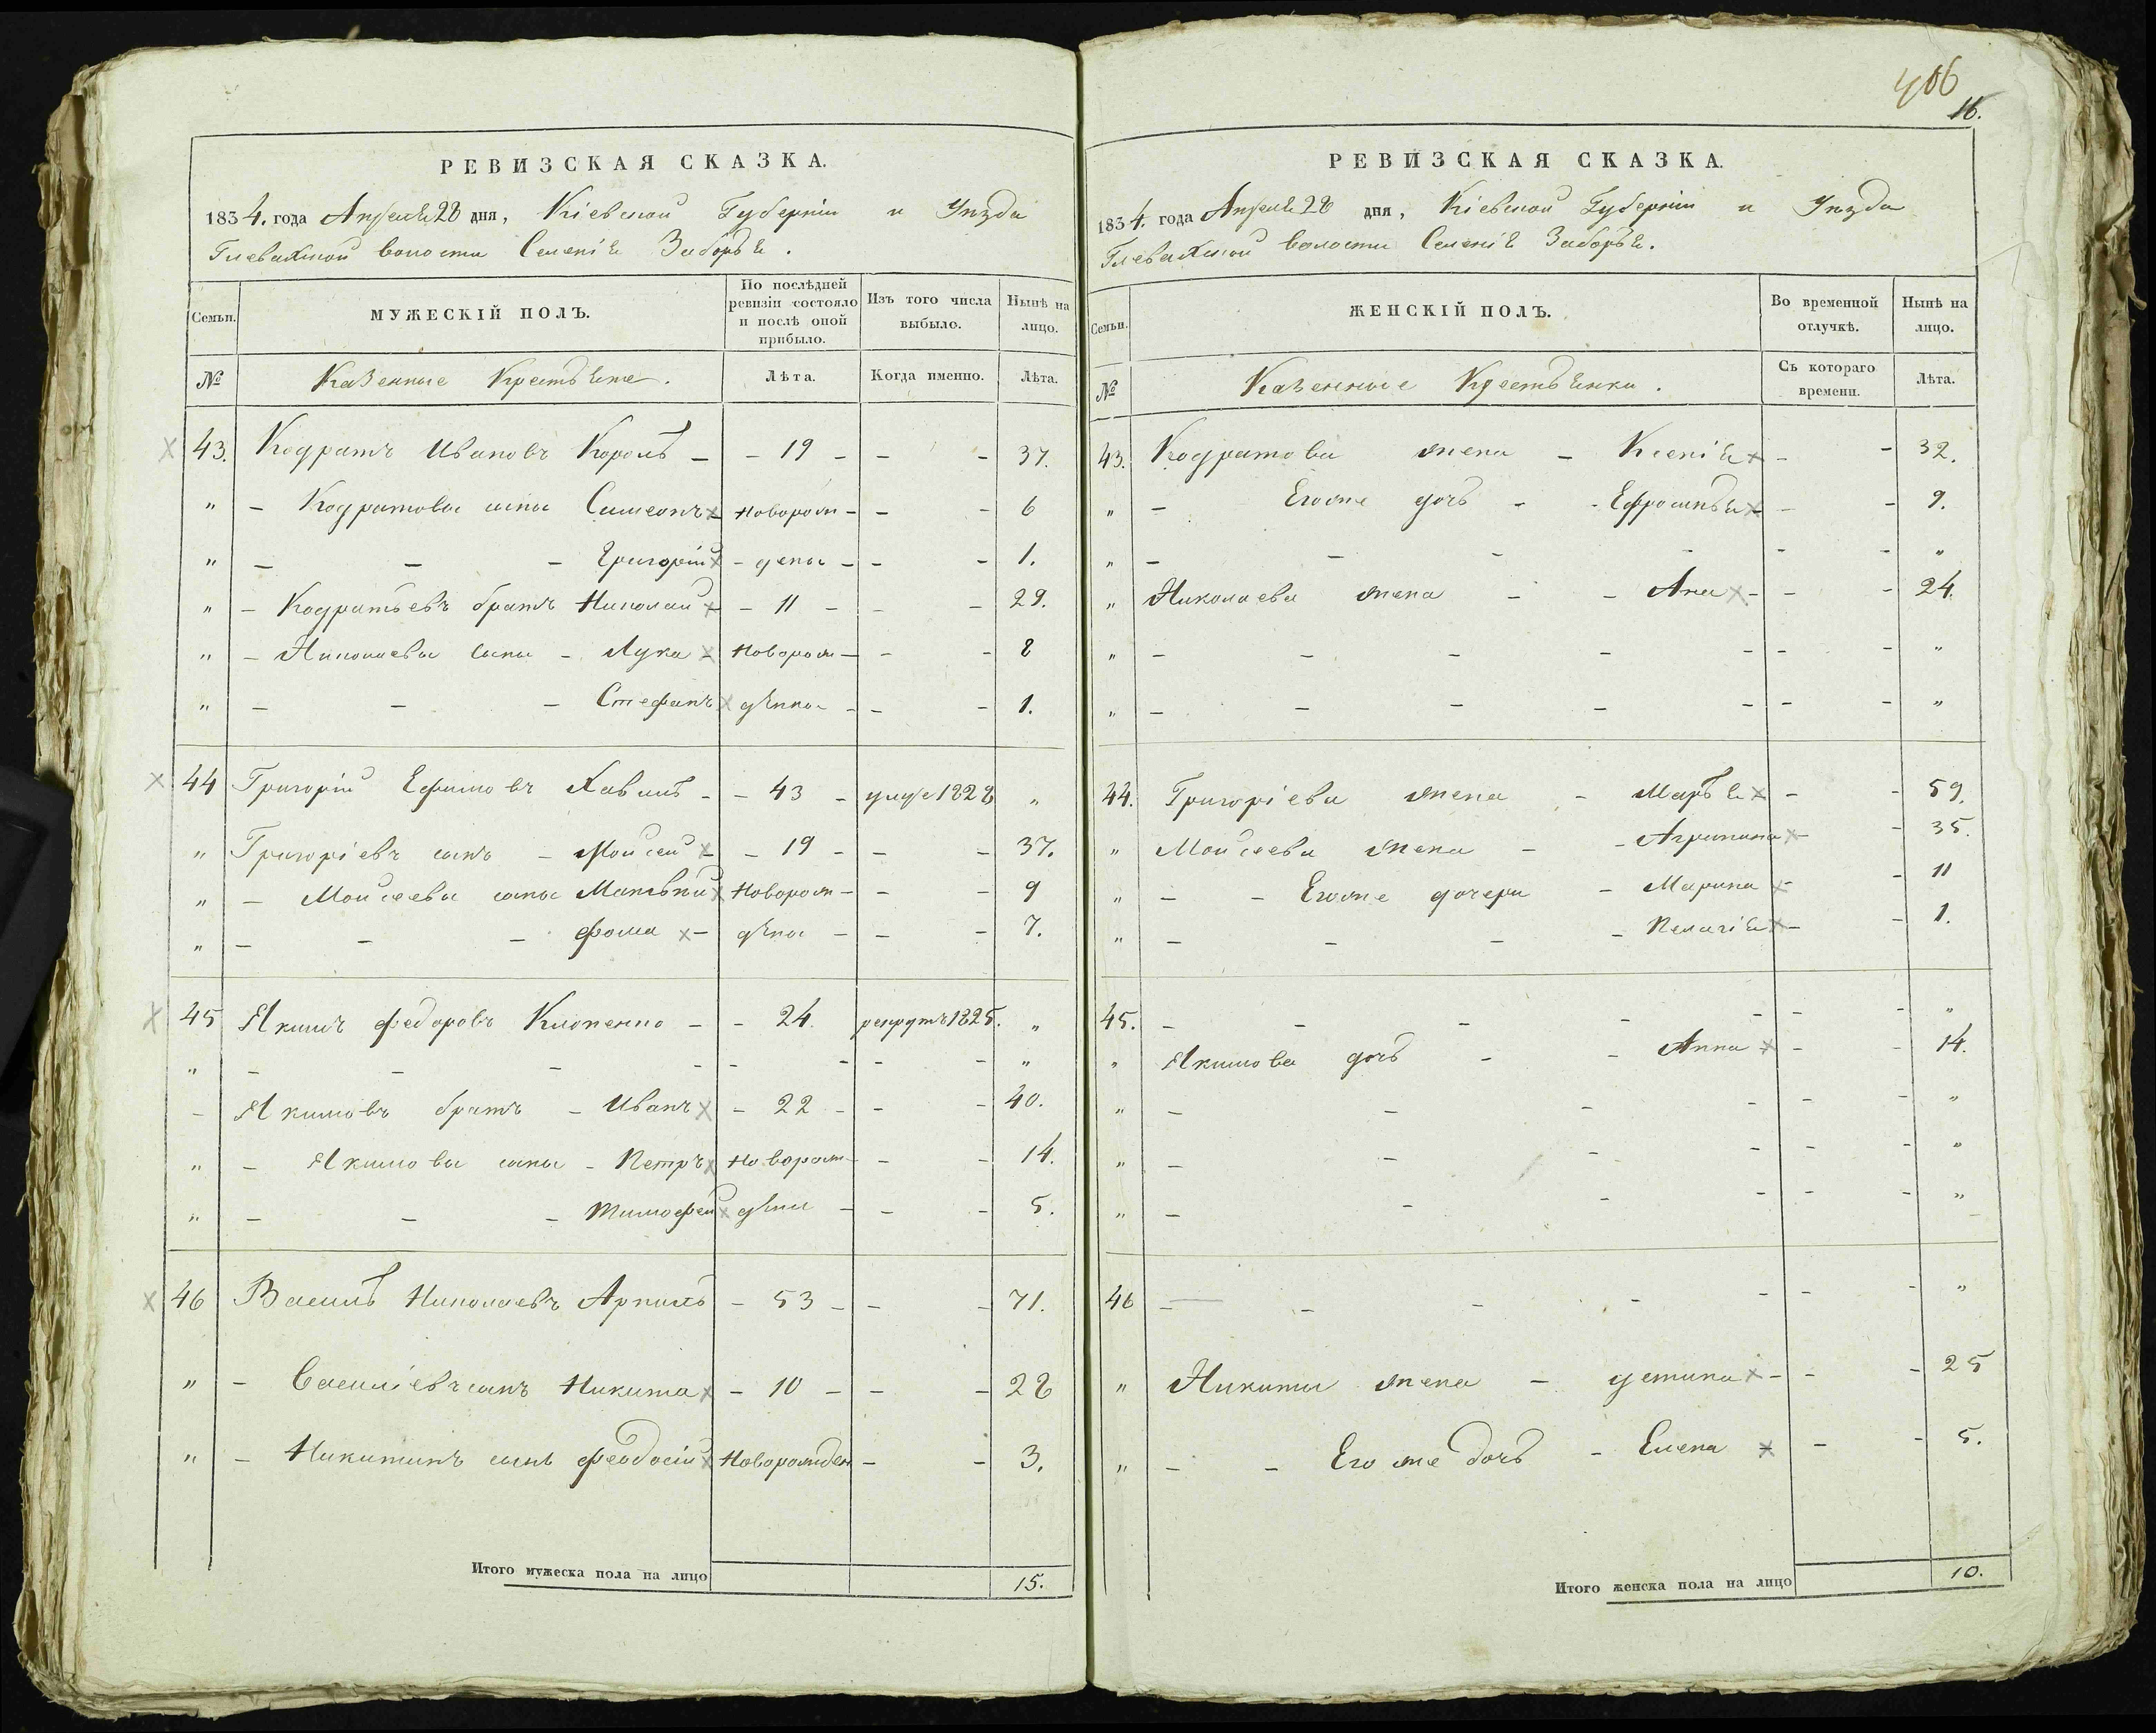 406
16.
РЕВИЗСКАЯ СКАЗКА.
1834. года Апреля 28 дня, Кіевской Губерніи и Уѣзда
Глевахской волости Селенія Заборья.
Семьи. МУЖЕСКІЙ ПОЛЪ. По послѣдней ревизіи состояло и послѣ оной прибыло. Изъ того числа выбыло. Нынѣ на лицо.
№ Казенные Крестьяне. Лѣта. Когда именно. Лѣта.
43. Кодратъ Ивановъ Король - - 19 - - - 37.
" - Кодратовы сыны Симеонъ - новорож - - - 6
" - - - Григорій - дены - - - 1.
" - Кодратьевъ братъ Николай - - 11 - - - 29.
" - Николаевы сыны - Лука - новорож - - - 8
" - - - Стефанъ дѣнны - - - 1.
44 Григорій Ефимовъ - - 43 - умре 1828 "
" Григоріевъ сынъ - Мойсей - - 19 - - - 37.
" - Мойсеевы сыны новорож - - - 9
" - - - Фома - дѣны - - - 7.
45 Якимъ Федоровъ Клопенко - - 24. рекрутъ 1825. "
" - - - - - - - - "
- Якимовъ братъ - Иванъ - 22 - - - 40.
" - Якимовы сыны - Петръ новорож - - - 14.
" - - - Тимофей дѣны - - - 5.
46 Василь Николаевъ - 53 - - - 71.
" - Василіевъ сынъ Никита - 10 - - - 28
" - Никитинъ сынъ Феодосій новорожден - - 3.
Итого мужеска пола на лицо 15.
РЕВИЗСКАЯ СКАЗКА.
1834. года Апреля 28 дня, Кіевской Губерніи и Уѣзда
Глевахской волости Селенія Заборья.
Семьи. ЖЕНСКІЙ ПОЛЪ. Во временной отлучкѣ. Нынѣ на лицо.
№ Казенные Крестьянки. Съ котораго времени. Лѣта.
43. Кодратова жена - Ксенія - - 32.
" - Егоже дочь - - Ефросинья - - 9.
" - - - - - - "
" Николаева жена - - Ана - - - 24.
" - - - - - - - "
" - - - - - - - "
44. Григоріева жена - Марья - - 59.
" Мойсеева жена - - Агрипина - - 35.
" - - Егоже дочери - Марина - - 11
" - - - - Пелагія - - 1.
45. - - - - - - - "
" Якимова дочь - - Анна - - 14.
" - - - - - - "
" - - - - - - "
" - - - - - - "
46 - - - - - - - "
" Никиты жена - Устина - - - 25
" - - Егоже дочь - Елена - - 5.
Итого женска пола на лицо 10.